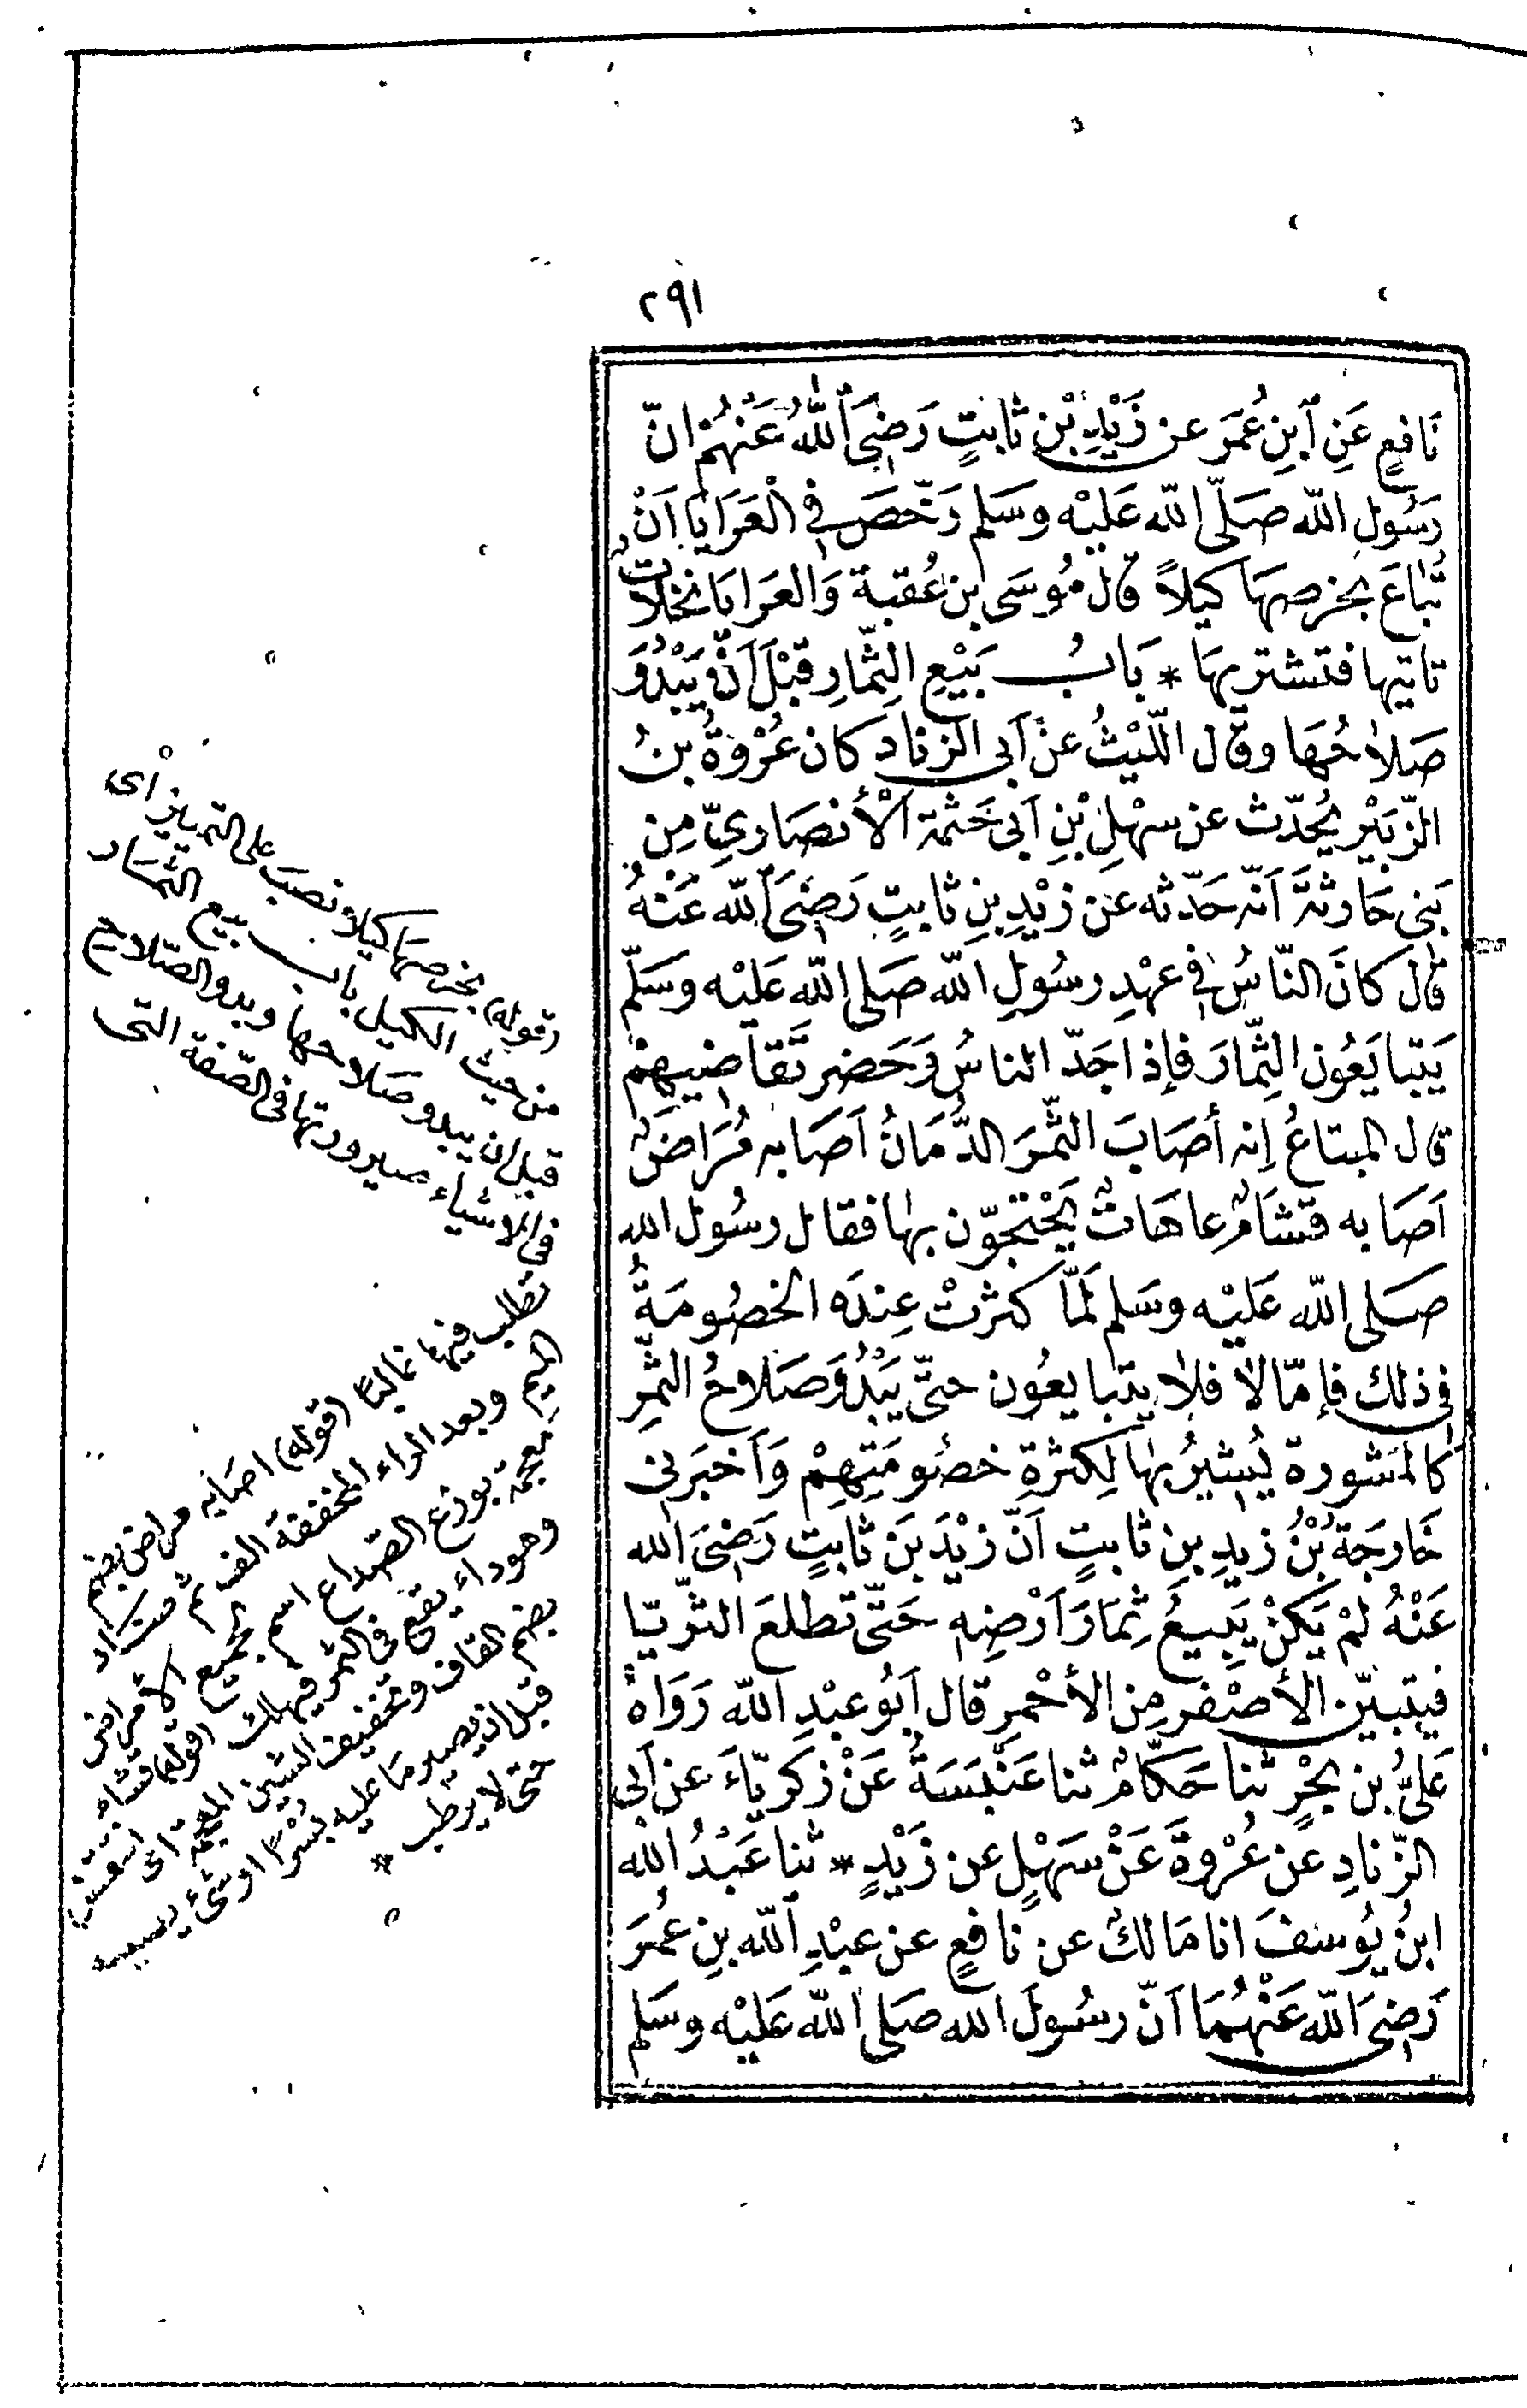 ٢٩١
نَافعٍ عَنِ ٱبنِ عُمَرَ عن زَيْدِ بْنِ ثابتٍ رَضِىَ ٱللّٰهُ عَنْهُمْ انّ
رَسُولَ الله صَلّى الله عَلَيْه وسَلم رَخَّصَ فى الْعَرَايَا اَنْ
تُبَاعَ بخرصِهَا كيلاً قال مُوسَى بن عُقبة وَالعَرايَا نخلاتٌ
تاتيها فتشتريهَا * بَابُ بَيْعِ الثِّمارِ قَبْلَ اَنْ يَبْدُوَ
صَلاحُهَا وقَال اللَّيْثُ عنْ اَبى الزناد كان عُرْوَةُ بنُ
الزّبَيْر يُحدّث عن سهْلِ بْنِ اَبى حَثمة الْأنصَارىِّ مِن
بَنى حَارثةَ اَنّه حَدّثه عن زيْدِ بنِ ثابتٍ رَضِىَ ٱلله عَنْهُ
قال كانَ النّاسُ فى عهْدِ رسُولِ الله صَلى الله عَلَيْه وسَلَّم
يَتبايَعُون الثِّمارَ فإذا جَدّ الناسُ وَحَضر تَقاضيهمْ
قال المبتاعُ إنه أصَابَ الثّمرَ الدُّمَانُ اَصَابه مُرَاضٌ
اَصَابه قشَامٌ عاهَاتٌ يَحْتجّون بها فقال رسُول الله
صَلى الله عَلَيْه وسَلم لَمّا كثرتْ عِندَه الخصُومَةُ
فى ذلك فإمّا لا فلا يتبايعُون حتّى يَبْدُوَ صَلاحُ الثمرِ
كالمَشورة يُشيرُ بها لِكثرةِ خصُومَتِهِمْ وَاَخبَرنى
خَارجَةُ بْنُ زيدِ بنِ ثابتٍ اَنّ زيْدَ بَن ثابتٍ رَضِىَ الله
عَنْهُ لمْ يَكنْ يَبِيعُ ثِمَارَ اَرْضِهِ حَتّى تطلعَ الثّريّا
فيتبيّن الأصْفر مِن الأحْمرِ قال اَبُو عبْدِ الله رَوَاهُ
عَلىُّ بن بحْرٍ ثنا حَكّامٌ ثنا عَنْبَسَةُ عَنْ زكريّاءَ عن اَبى
الزّنادِ عن عُرْوةَ عَنْ سَهْلٍ عن زَيْدٍ * ثنا عَبْدُ الله
ابنُ يُوسفَ انا مَالكٌ عن نافعٍ عن عبْدِ ٱلله بنِ عمُرَ
رَضِىَ الله عَنْهُمَا اَنّ رسُولَ الله صَلى الله عَليْه وسَلم
(قوله) بخرصهَا كيلا نصبَ على التمييز اى
من حيث الكيل باب بيع الثمار
قبل ان يبدو صَلاحها وبدو الصّلاح
فى الاشياء صيرورتها فى الصّفة التى
تطلب فيها غالبًا (قوله) اصَابه مراض بضم
الميم وبعد الراء المخففة الف ثم ضاد
معجمة بوزن الصداع اسم لجميع الأمراض
وهو داء يقع فى الثمر فيهلك (قوله) قشام
بضم القاف وتخفيف الشين المعجمة اى انتفض
قبل ان يصير مَا عليه بُسْرًا او شئ يصيبه
حتى لا يرطب *